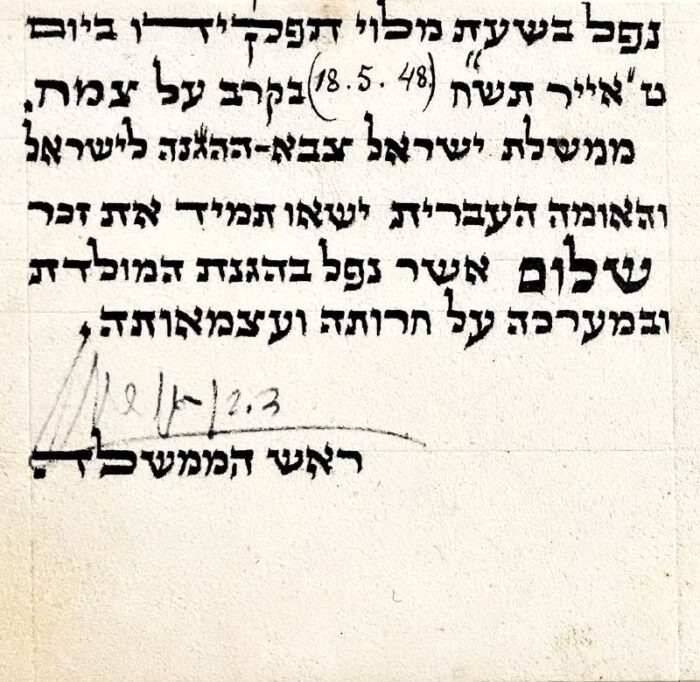 נפל בשעת מלוי תפקידו ביום
ט" אייר תש"ח (18.5.48) בקרב על צמח.
ממשלת ישראל צבא-ההגנה לישראל
והאומה העברית ישאו תמיד את זכר
שלום אשר נפל בהגנת המולדת
ובמערכה על חרותה ועצמאותה.
ראש הממשלה